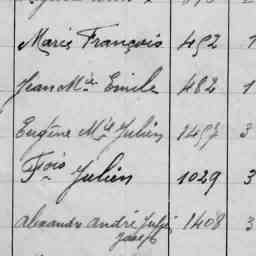 Marie François 452 1
Jean M.ie Emile 482 1
Eugène M.ie Julien 1457 3
F.ois Julien 1029 3
Alexandre André Jules 1408 3
Joseph